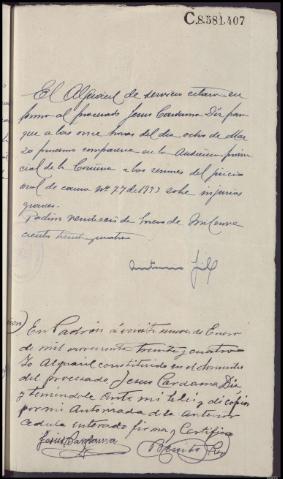 C.8.581.407
El Alguacil de servicio citará en
forma al procesado Jesus Cardama Diz para
que a las once horas del dia ocho de Mar
zo proximo comparezca en la Audiencia provin
cial de la Coruña a las sesiones del juicio
oral de causa nº 77 de 1933 sobre injurias
graves.
Padron veintiseis de Enero de mil nove
cientos treinta y cuatro
En Padrón á veintinueve de Enero
de mil novecientos treinta y cuatro
Yo Alguacil constituido en el domicilio
del procesado Jesus Cardama Diz
y teniendole ante mi le lei y di copia
por mi Autorizada de la Anterior
cedula enterado firma y Certifico
Jesús Cardama
Benito